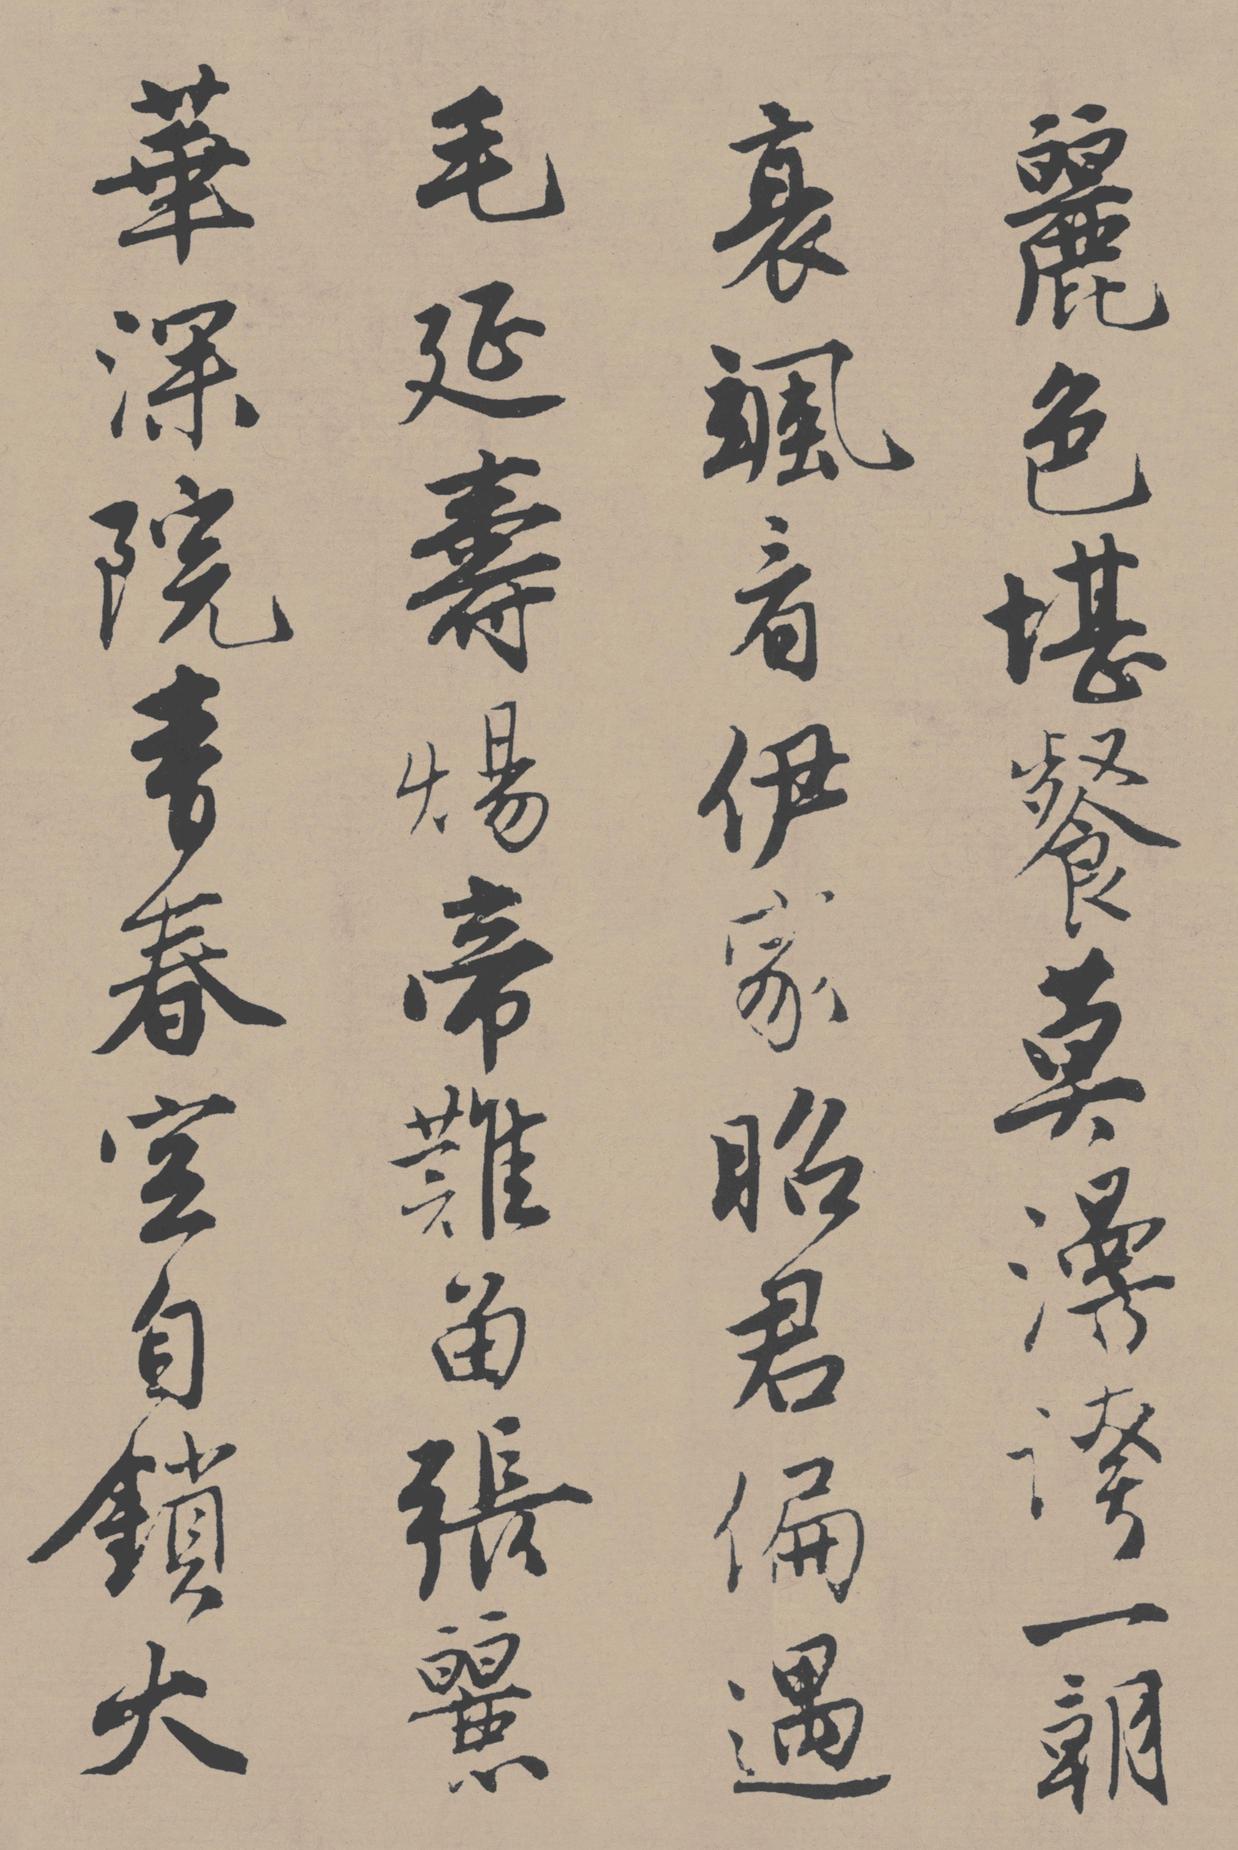 麗色堪餐莫漫誇一朝
衰颯看伊家昭君偏遇
毛延壽煬帝難留張麗
華深院青春空自鎖大